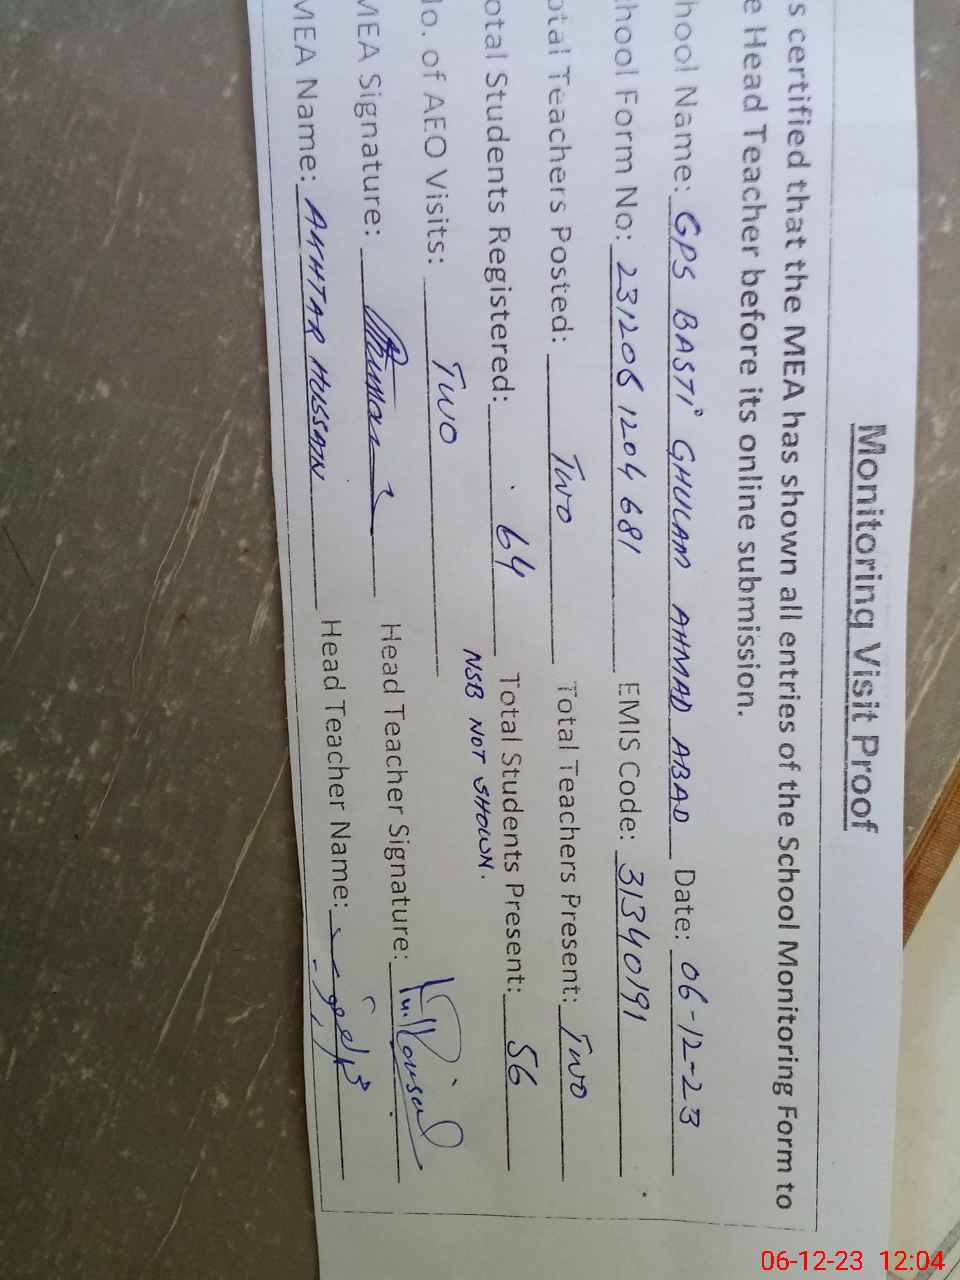 Monitoring Visit Proof
s certified that the MEA has shown all entries of the School Monitoring Form to
e Head Teacher before its online submission.
hool Name: GPS BASTI GHULAM AHMAD ABAD Date: 06-12-23
hool Form No: 231206 1204 681 EMIS Code: 31340191
otal Teachers Posted: Two Total Teachers Present: Two
otal Students Registered: 64 Total Students Present: 56
NSB NOT SHOWN.
lo. of AEO Visits: Two
MEA Signature: Head Teacher Signature:
MEA Name: AKHTAR HUSSAIN Head Teacher Name:
06-12-23 12:04